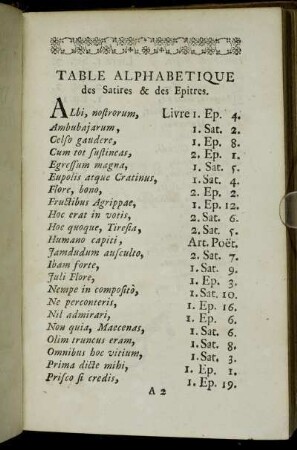 TABLE ALPHABETIQUE
des Satires & des Epitres.
ALbi, nostrorum, Livre 1. Ep. 4.
Ambubajarum, 1. Sat. 2.
Celso gaudere, 1. Ep. 8.
Cum tot sustineas, 2. Ep. 1.
Egressum magna, 1. Sat. 5.
Eupolis atque Cratinus, 1. Sat. 4.
Flore, bono, 2. Ep. 2.
Fructibus Agrippae, 1. Ep. 12.
Hoc erat in votis, 2. Sat. 6.
Hoc quoque, Tiresia, 2. Sat. 5.
Humano capiti, Art. Poët.
Jamdudum ausculto, 2. Sat. 7.
Ibam forte, 1. Sat. 9.
Juli Flore, 1. Ep. 3.
Nempe in compositò, 1. Sat. 10.
Ne perconteris, 1. Ep. 16.
Nil admirari, 1. Ep. 6.
Non quia, Maecenas, 1. Sat. 6.
Olim truncus eram, 1. Sat. 8.
Omnibus hoc vitium, 1. Sat. 3.
Prima dicte mihi, 1. Ep. 1.
Prisco si credis, 1. Ep. 19.
A 2